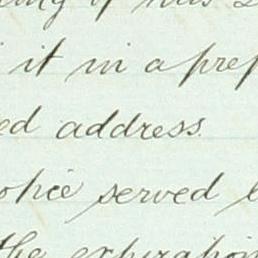 it in a prep
ed address.
otice served b
the expiration